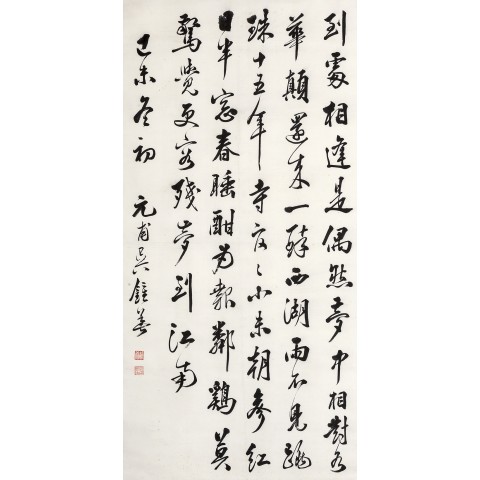 到處相逢是偶然夢中相對各
華顛還來一醉西湖雨不見跳
珠十五年寺官〻小未朝參紅
日半窓春睡酣為報鄰鷄莫
驚覺更容殘夢到江南
己未冬初 元甫吳鍾善